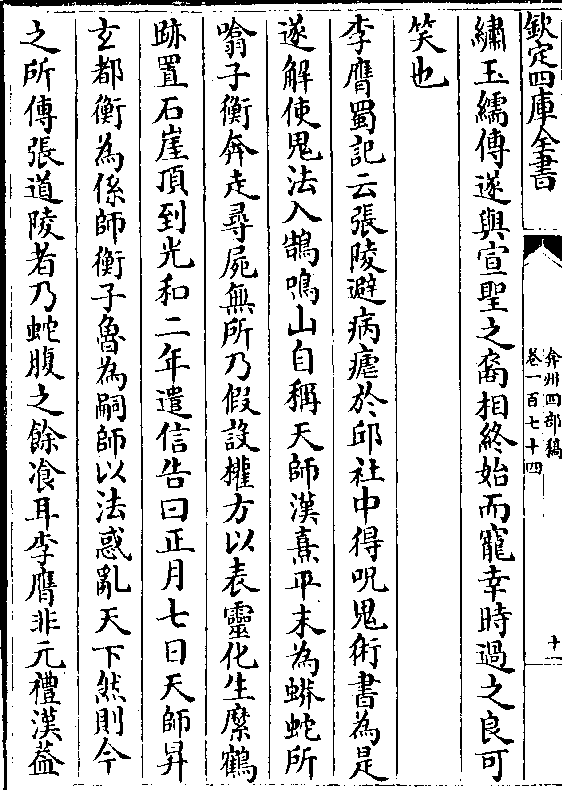 欽定四庫全書
弇州四部稿
卷一百七十四
十一
繡玉繻傳遂與宣聖之裔相終始而寵幸時過之良可
笑也
李膺蜀記云張陵避病瘧於邱社中得呪鬼術書為是
遂解使鬼法入鵠鳴山自稱天師漢熹平末為蟒蛇所
噏子衡奔走尋屍無所乃假設權方以表靈化生縻鶴
跡置石崖頂到光和二年遣信告曰正月七日天師昇
玄都衡為係師衡子魯為嗣師以法惑亂天下然則今
之所傳張道陵者乃蛇腹之餘飡耳李膺非元禮漢益